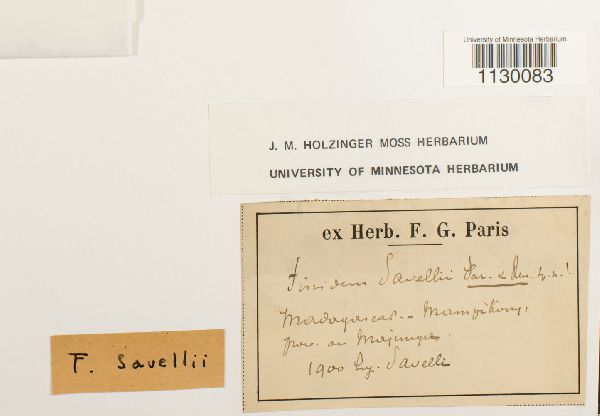 University of Minnesota Herbarium
1130083
J. M. HOLZINGER MOSS HERBARIUM
UNIVERSITY OF MINNESOTA HERBARIUM
ex Herb. F. G. Paris
Fissidens Savellii Par. & Ren.
Madagascar -
prov. de Majunga.
1900 Lg. Savelli
F. Savellii